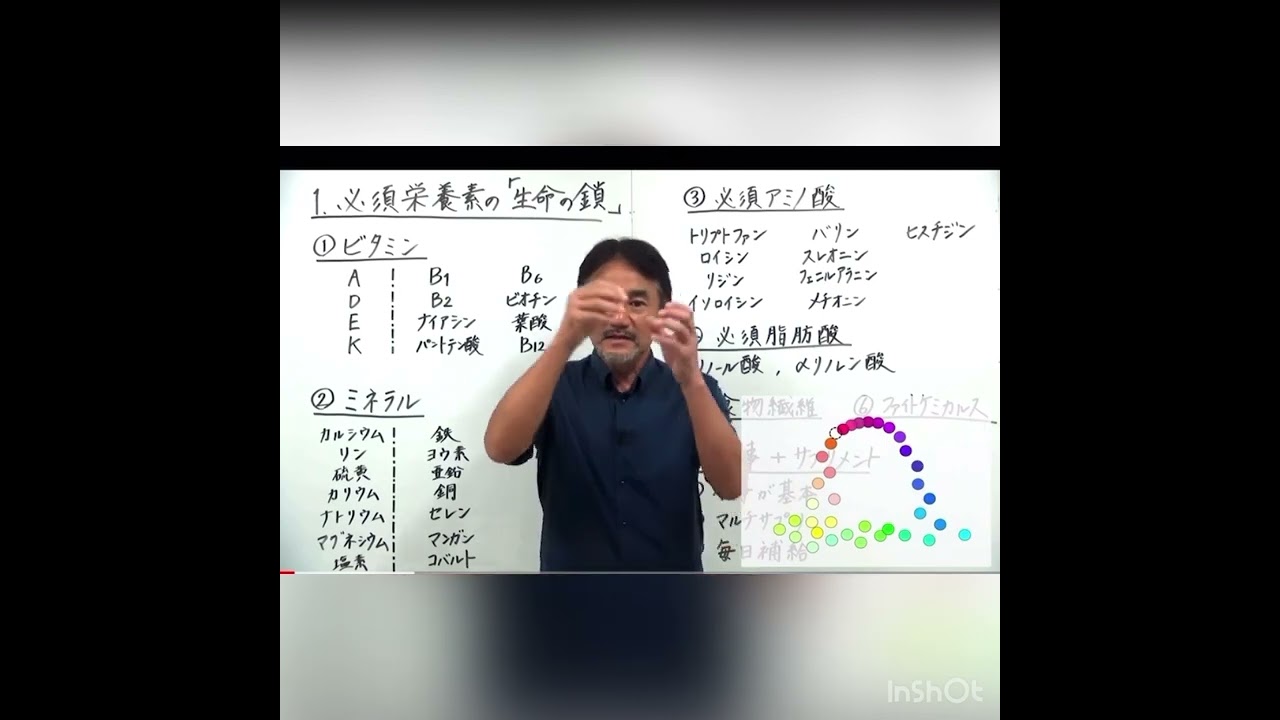 1. 必須栄養素の「生命の鎖」
① ビタミン
A B1 B6
D B2 ビオチン
E ナイアシン 葉酸
K パントテン酸 B12
② ミネラル
カルシウム 鉄
リン ヨウ素
硫黄 亜鉛
カリウム 銅
ナトリウム セレン
マグネシウム マンガン
塩素 コバルト
③ 必須アミノ酸
トリプトファン バリン ヒスチジン
ロイシン スレオニン
リジン フェニルアラニン
イソロイシン メチオニン
必須脂肪酸
リノール酸, αリノレン酸
物繊維 ⑥ ファイトケミカルス
+ サプリメント
が基本
マルチサプリ
毎日補給
InShOt